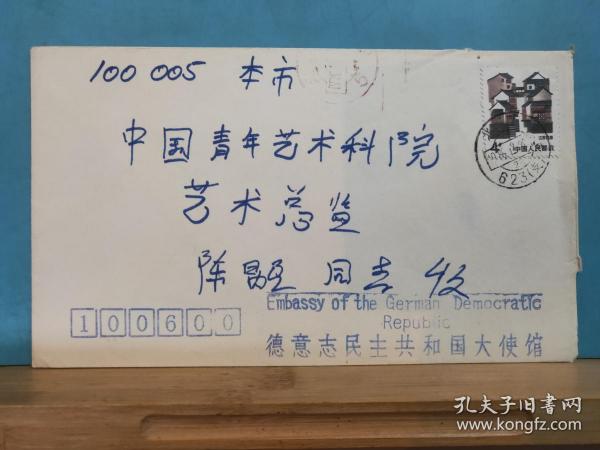 100 005 本市
中国青年艺术科院
艺术总监
陈 同志 收
100600
Embassy of the German Democratic
Republic
德意志民主共和国大使馆
4
中国人民邮政
623(支)
孔夫子旧书网
www.kongfz.com